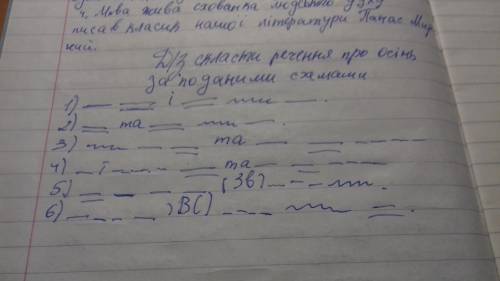 4. Мова жива схованка людського духу
писав класик нашої літератури Панас Мир
ний.
Д/З скласти речення про осінь
за поданими схемами
1) — = і = ~~~ —.
2) = та = ~~~ —.
3) ~~~ — = та — = – – –
4) – і – – – = та — = – – –
5) = – – — (Зв) – – – ~~~.
6) – – – – , ВС) – – – ~~~ =.